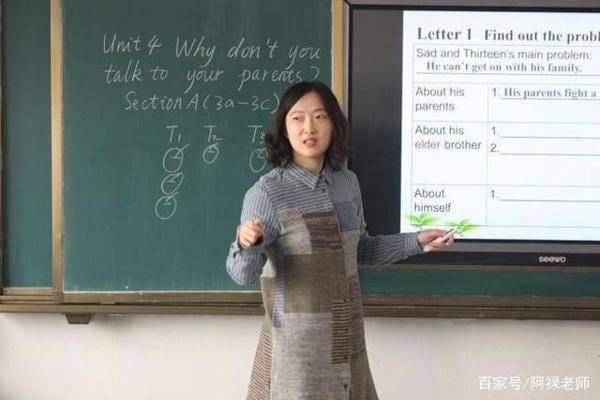 Unit 4 Why don't you
talk to your parents?
Section A (3a-3c)
T1 T2 T3
Letter 1 Find out the probl
Sad and Thirteen's main problem:
He can't get on with his family.
About his
parents
1. His parents fight a
About his
elder brother
1.
2.
About
himself
1.
seewo
百家号/阿禄老师